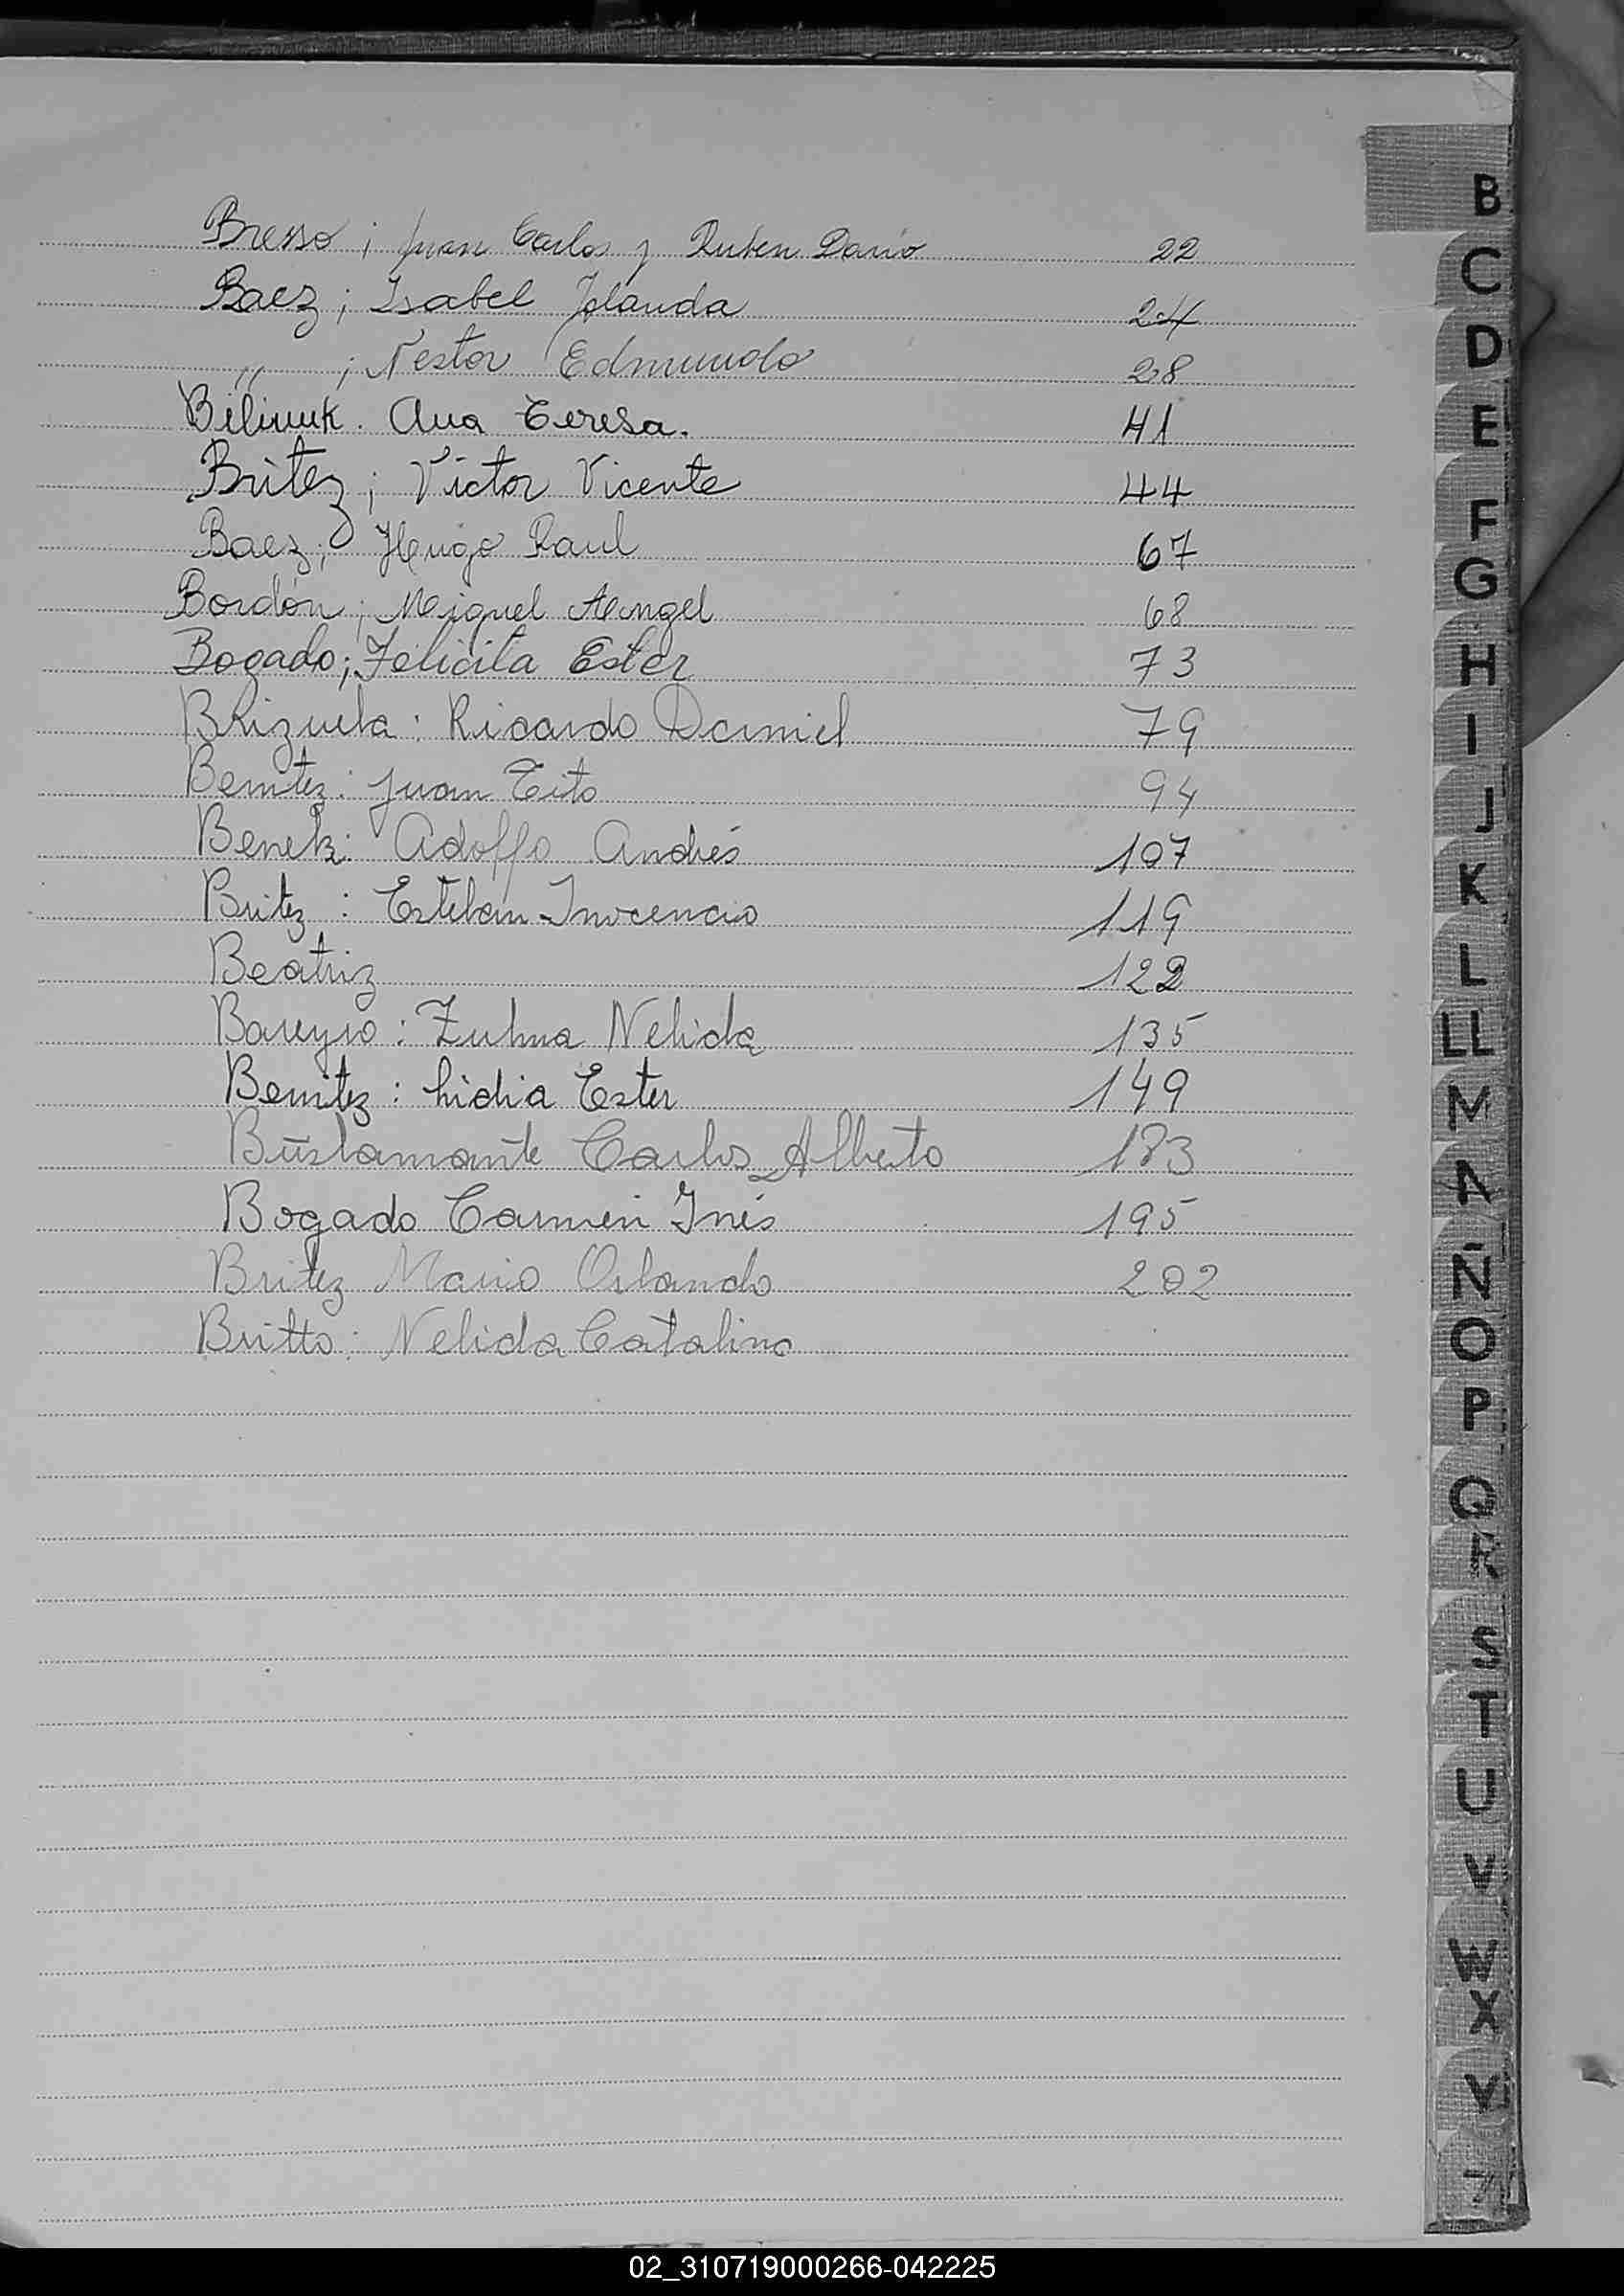 Bresso; Juan Carlos y Ruben Dario 22
Baez; Isabel Jolanda 24
,, ; Nestor Edmundo 28
Bilinuk. Ana Teresa. 41
Britez; Victor Vicente 44
Baez; Hugo Raul 67
Bordón; Miguel Aungel 68
Bogado; Felicita Ester 73
BRizuela: Ricardo Daniel 79
Benitez: Juan Tito 94
Adolfo Andrés 107
Britez: Esteban Inocencio 119
Beatriz 122
Bareyro: Zulma Nelida 135
Benitez: Lidia Ester 149
Bustamante Carlos Alberto 183
Bogado Carmen Inés 195
Britez Mario Orlando 202
Britto: Nelida Catalina
B
C
D
E
F
G
H
I
J
K
L
LL
M
N
Ñ
O
P
Q
R
S
T
U
V
W
X
Y
Z
02_310719000266-042225